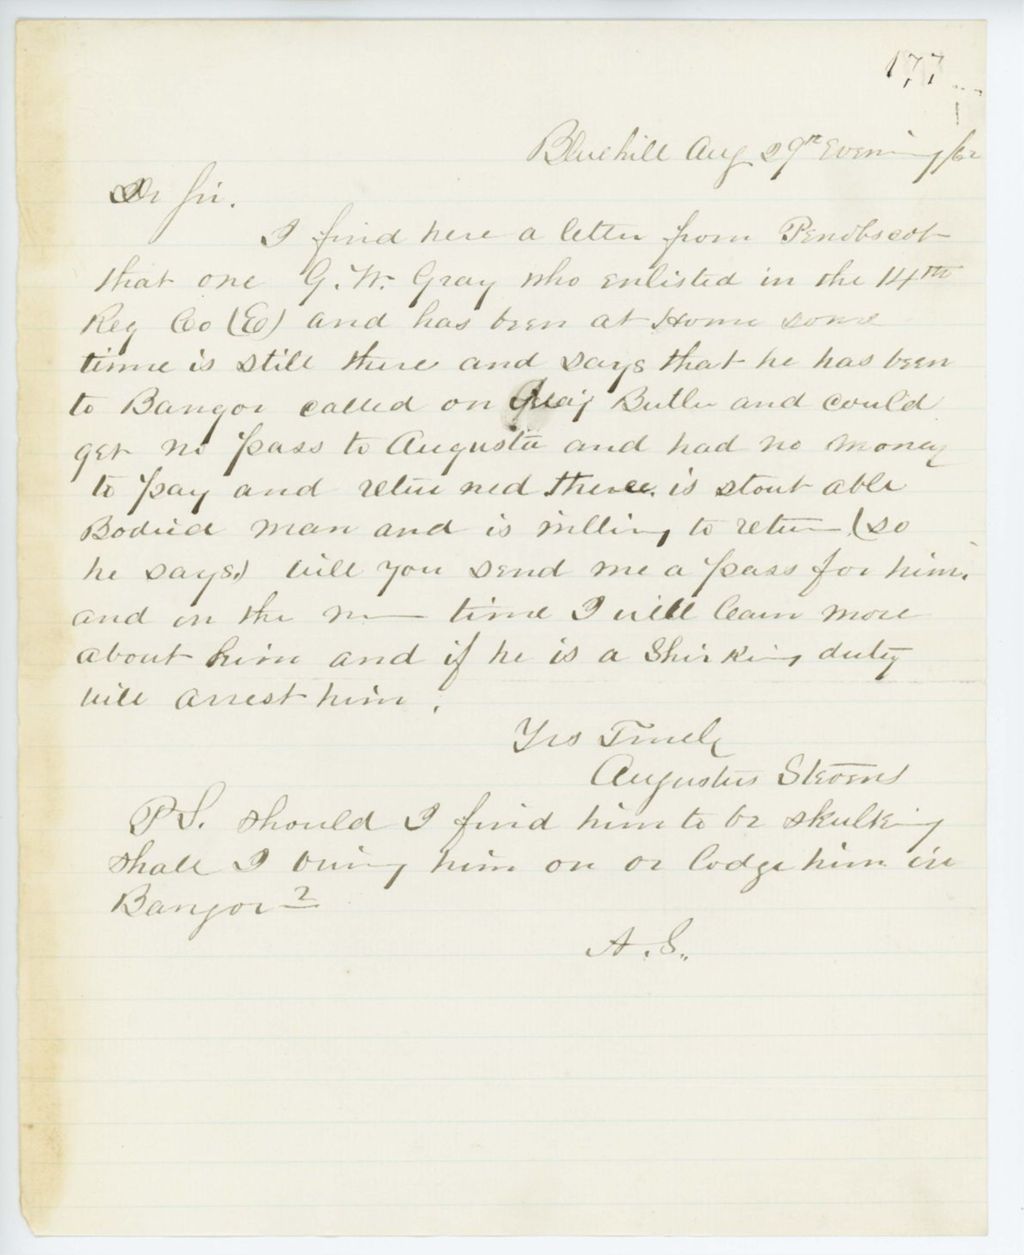 177
Bluehill Aug 29th Evening /62
Dr Sir.
I find here a letter from Penobscot
that one G. W. Gray who enlisted in the 14th
Reg Co (E) and has been at Home some
time is still there and says that he has been
to Bangor called on Maj Butler and could
get no pass to Augusta and had no money
to pay and returned there. is stout able
Bodied man and is willing to return (so
he says.) will you send me a pass for him.
and in the m— time I will learn more
about him and if he is a Shirking duty
will arrest him.
Yrs Truely
Augustus Stevens
P S. should I find him to be skulking
shall I bring him on or lodge him in
Bangor?
A. S.